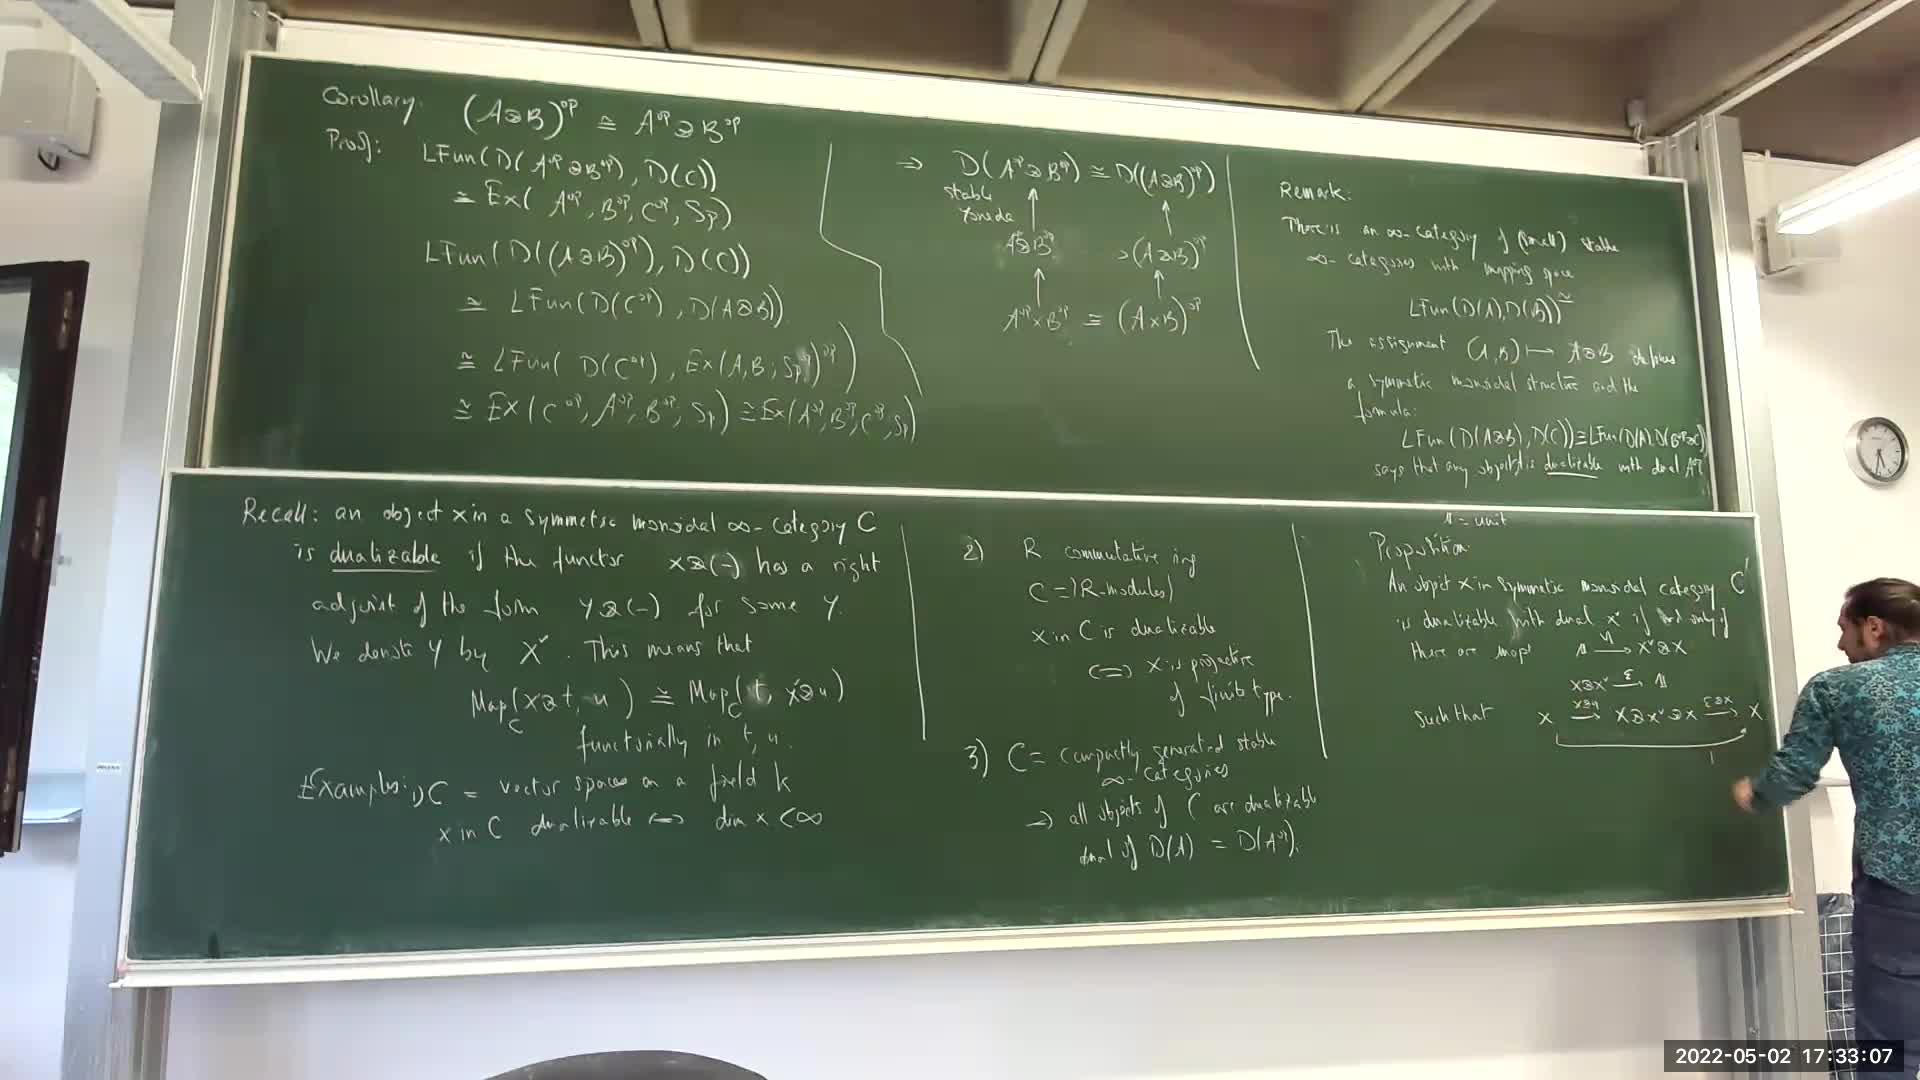 Corollary: (A⊗B)^op ≅ A^op ⊗ B^op
Proof: LFun(D(A^op⊗B^op), D(C))
≅ Ex(A^op, B^op, C^op, Sp)
LFun(D((A⊗B)^op), D(C))
≅ LFun(D(C^op), D(A⊗B))
≅ LFun(D(C^op), Ex(A,B; Sp)^op)
≅ Ex(C^op, A^op, B^op, Sp) ≅ Ex(A^op, B^op, C^op, Sp)
⇒ D(A^op⊗B^op) ≅ D((A⊗B)^op)
stable
Yoneda
A^op⊗B^op (A⊗B)^op
A^op×B^op ≅ (A×B)^op
Remark:
There is an ∞-category of (small) stable
∞-categories with mapping space
LFun(D(A),D(B))^≃
The assignment (A,B) ↦ A⊗B defines
a symmetric monoidal structure and the
formula:
LFun(D(A⊗B), D(C)) ≅ LFun(D(A), D(B^op⊗C))
says that any object is dualizable with dual A^op
Recall: an object x in a symmetric monoidal ∞-category C
is dualizable if the functor x⊗(-) has a right
adjoint of the form y⊗(-) for some y.
We denote y by x^∨. This means that
Map_C(x⊗t, u) ≅ Map_C(t, x^∨⊗u)
functorially in t, u.
Examples: 1) C = vector spaces on a field k
x in C dualizable ⟺ dim x < ∞
2) R commutative ring
C = (R-modules)
x in C is dualizable
⟺ x is projective
of finite type.
3) C = compactly generated stable
∞-categories
→ all objects of C are dualizable
dual of D(A) = D(A^op).
𝟙 = unit
Proposition:
An object x in symmetric monoidal category C
is dualizable with dual x^∨ if and only if
there are maps 𝟙 —η→ x^∨⊗x
x⊗x^∨ —ε→ 𝟙
such that x —x⊗η→ x⊗x^∨⊗x —ε⊗x→ x
1
2022-05-02 17:33:07